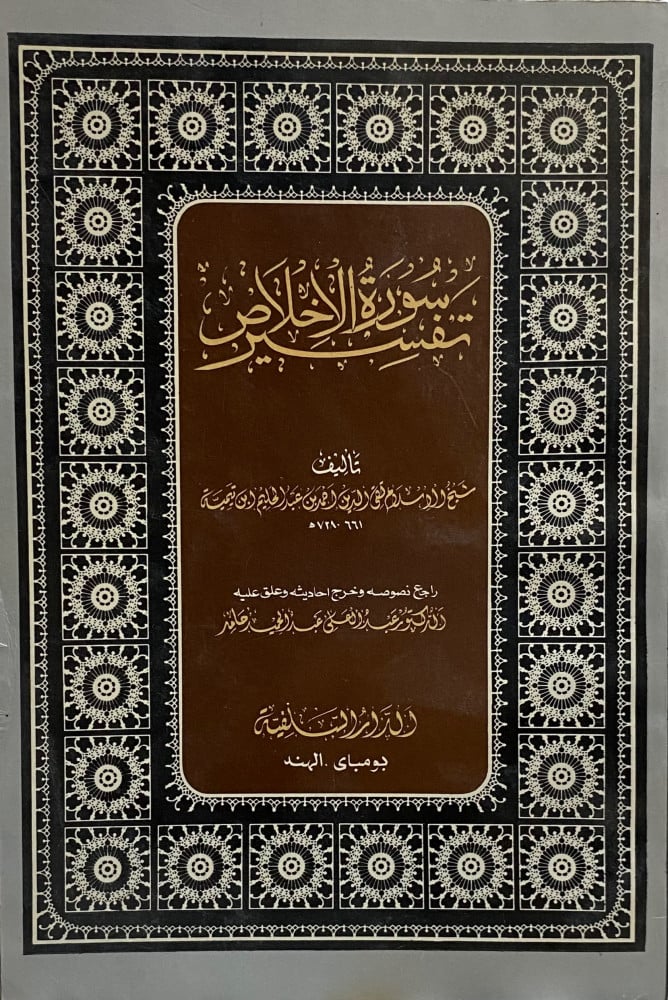 تفسير سورة الإخلاص
تأليف
شيخ الإسلام تقي الدين احمد بن عبد الحليم ابن تيمية
٦٦١-٧٢٨ه
راجع نصوصه وخرج احاديثه وعلق عليه
الدكتور عبد العلى عبد الحميد حامد
الدار السلفية
بومباى . الهند